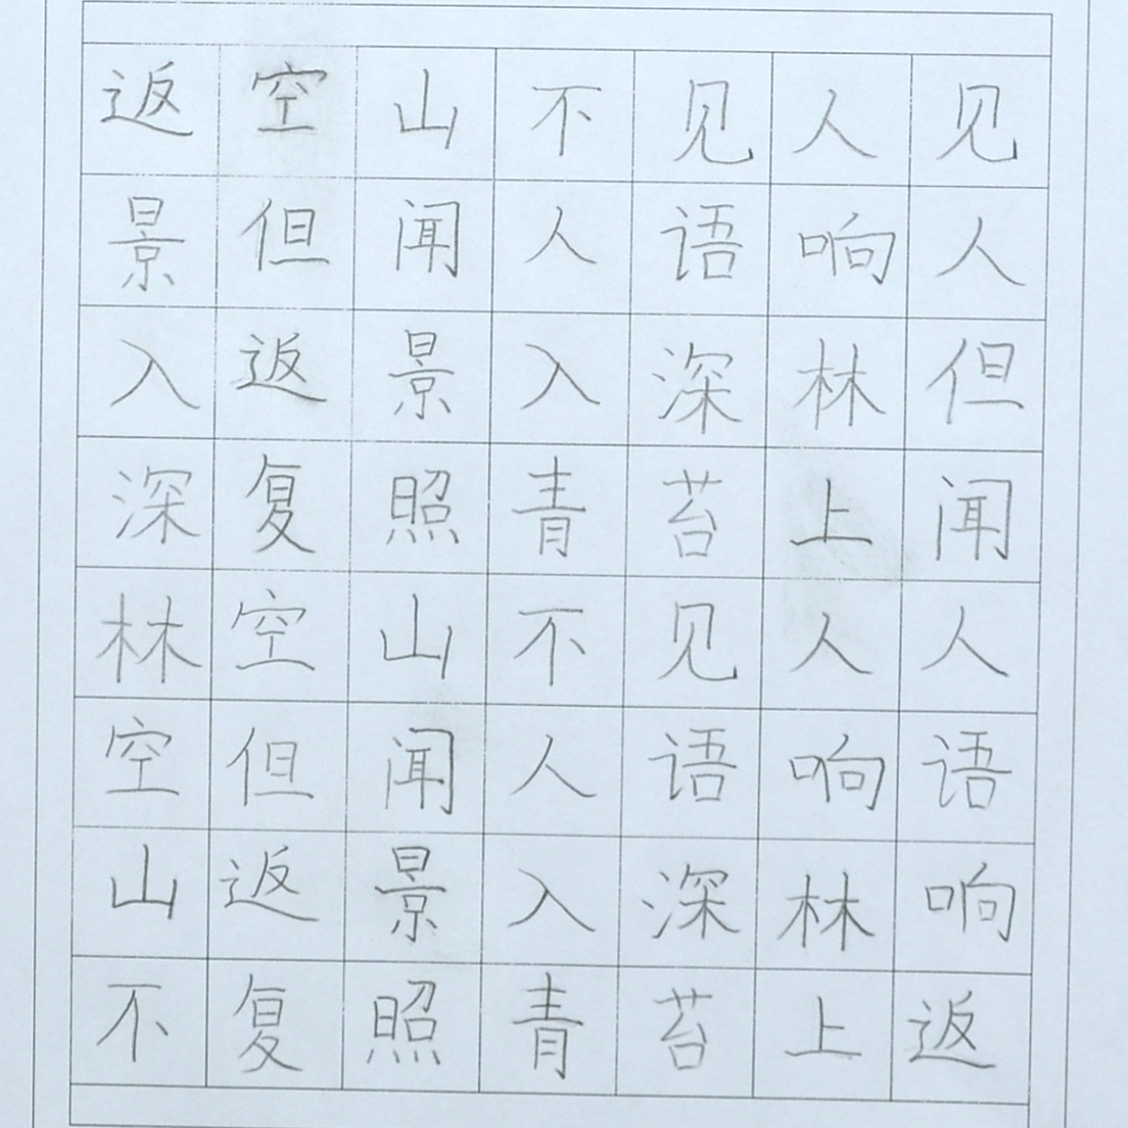 返空山不见人见
景但闻人语响人
入返景入深林但
深复照青苔上闻
林空山不见人人
空但闻人语响语
山返景入深林响
不复照青苔上返